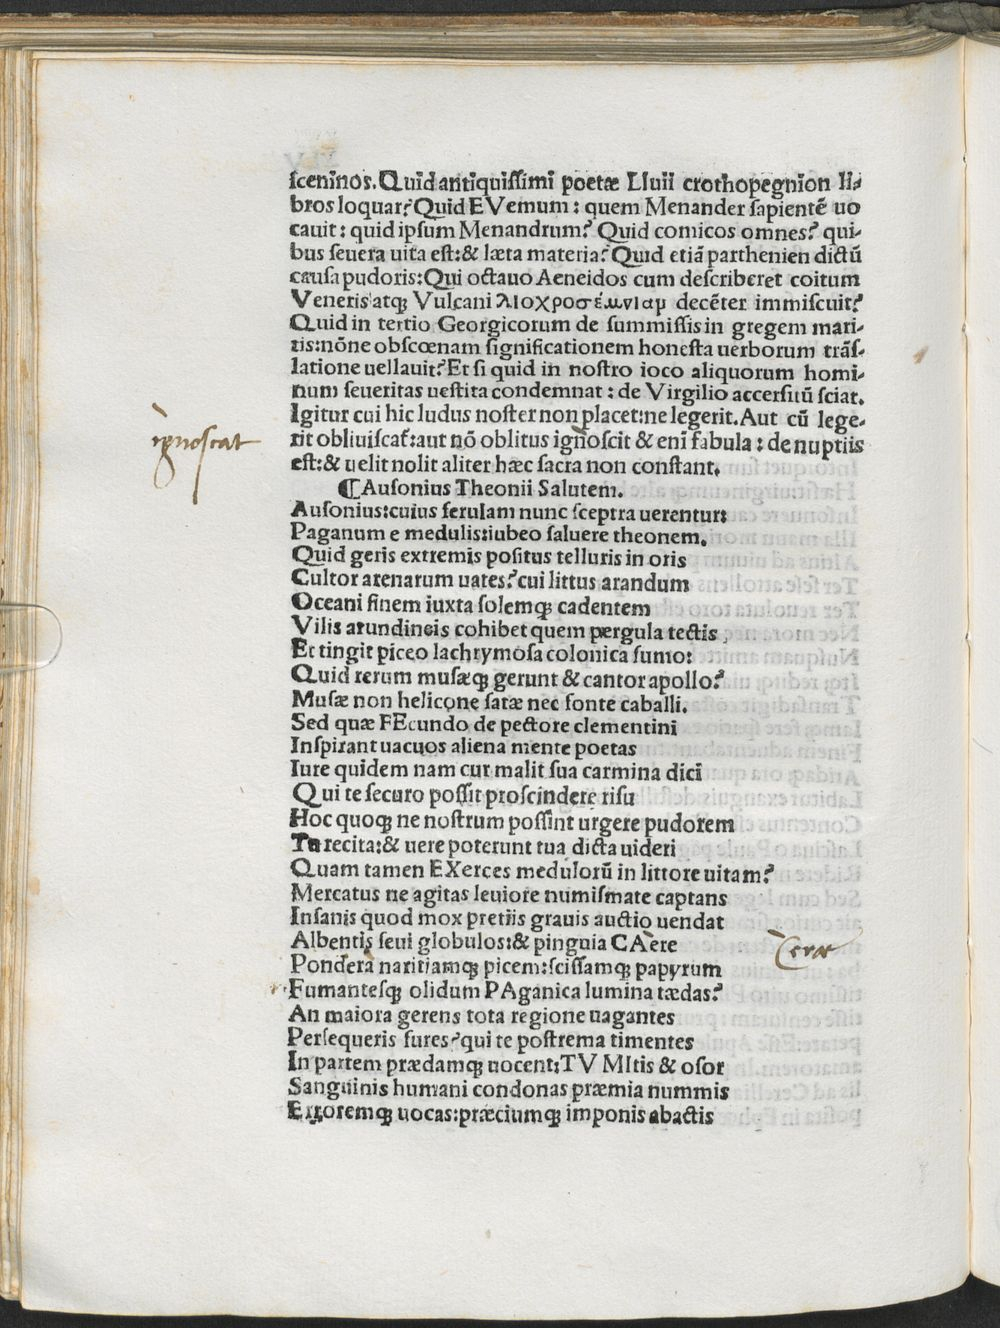 sceninos. Quid antiquissimi poetæ Liuii crothopegnion li⸗
bros loquar? Quid EVemum: quem Menander sapientē uo
cauit: quid ipsum Menandrum? Quid comicos omnes? qui⸗
bus seuera uita est: & læta materia? Quid etiā parthenien dictū
causa pudoris: Qui octauo Aeneidos cum describeret coitum
Veneris atqꝫ Vulcani λιοχροσέμνιαμ decēter immiscuit?
Quid in tertio Georgicorum de summissis in gregem mari⸗
tis: nōne obscœnam significationem honesta uerborum trāſ⸗
latione uellauit? Et si quid in nostro ioco aliquorum homi⸗
num seueritas uestita condemnat: de Virgilio accersitū sciat.
Igitur cui hic ludus noster non placet: ne legerit. Aut cū lege⸗
rit obliuiscat̄: aut nō oblitus ignoscit & enī fabula: de nuptiis
est: & uelit nolit aliter hæc sacra non constant.
ignoscat
¶ Ausonius Theonii Salutem.
Ausonius: cuius ferulam nunc sceptra uerentur:
Paganum e medulis: iubeo saluere theonem.
Quid geris extremis positus telluris in oris
Cultor arenarum uates? cui littus arandum
Oceani finem iuxta solemqꝫ cadentem
Vilis arundineis cohibet quem pergula tectis
Et tingit piceo lachrymosa colonica fumo:
Quid rerum musæqꝫ gerunt & cantor apollo?
Musæ non helicone satæ nec fonte caballi.
Sed quæ FEcundo de pectore clementini
Inspirant uacuos aliena mente poetas
Iure quidem nam cur malit sua carmina dici
Qui te securo possit proscindere risu
Hoc quoqꝫ ne nostrum possint urgere pudorem
Tu recita: & uere poterunt tua dicta uideri
Quam tamen EXerces medulorū in littore uitam?
Mercatus ne agitas leuiore numismate captans
Insanis quod mox pretiis grauis auctio uendat
Albentis seui globulos: & pinguia CAere
Cerae
Pondera naritiamqꝫ picem: scissamqꝫ papyrum
Fumantesqꝫ olidum PAganica lumina tædas?
An maiora gerens tota regione uagantes
Persequeris fures? qui te postrema timentes
In partem prædamqꝫ uocent: TV MItis & osor
Sanguinis humani condonas præmia nummis
Erroremqꝫ uocas: præciumqꝫ imponis abactis